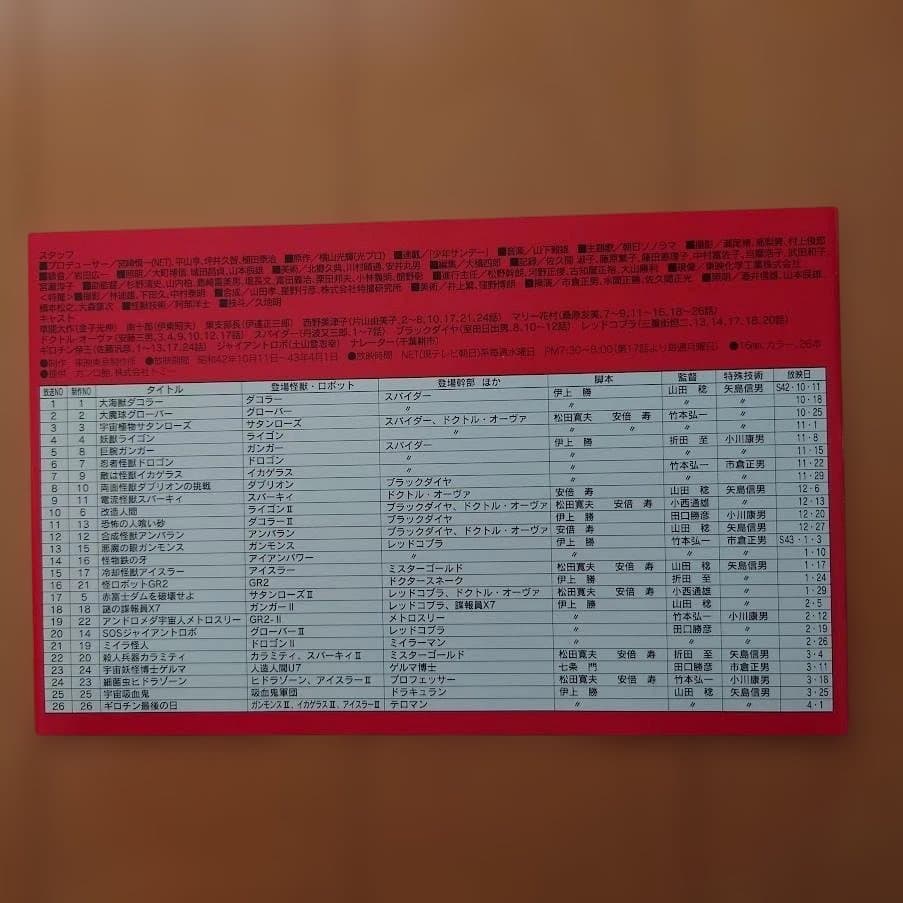 スタッフ
■プロデューサー/宮崎慎一(NET)、平山亨、坪井久智、植田泰治 ■原作/横山光輝(光プロ) ■連載/「少年サンデー」 ■音楽/山下毅雄 ■主題歌/朝日ソノラマ ■撮影/
■録音/岩田広一 ■照明/ ■美術/ ■編集/ ■記録/
■助監督/ ■進行主任/ ■現像/東映化学工業株式会社
<特撮> ■撮影/ ■合成/ 株式会社特撮研究所 ■美術/井上繁、 ■操演/ ■照明/
■怪獣技術/ ■技斗/久地明
キャスト
草間大作(金子光伸) 南十郎(伊東昭夫) 東支部長(伊達正三郎) 西野美津子(片山由美子、2~8、10、17、21、24話) マリー花村(桑原友美、7~9、11~16、18~26話)
ドクトル・オーヴァ(安藤三男、3、4、9、10、12、17話) スパイダー(丹波又三郎、1~7話) ブラックダイヤ(室田日出男、8、10~12話) レッドコブラ(三重街恒二、13、14、17、18、20話)
ギロチン帝王(佐藤汎彦、1~13、17、24話) ジャイアントロボ(土山登志幸) ナレーター(千葉耕市)
●制作 東映東京制作所 ●放映期間 昭和42年10月11日~43年4月1日 ●放映時間 NET(現テレビ朝日)系毎週水曜日 PM7:30~8:00(第17話より毎週月曜日) ●16mm、カラー、26本
●提供 ガンロ飴、株式会社トミー
放送NO 制作NO タイトル 登場怪獣・ロボット 登場幹部 ほか 脚本 監督 特殊技術 放映日
1 1 大海獣ダコラー ダコラー スパイダー 伊上 勝 山田 稔 矢島信男 S42・10・11
2 2 大魔球グローバー グローバー 〃 〃 〃 〃 10・18
3 3 宇宙植物サタンローズ サタンローズ スパイダー、ドクトル・オーヴァ 松田寛夫 安倍 寿 竹本弘一 〃 10・25
4 4 妖獣ライゴン ライゴン 〃 〃 〃 〃 〃 11・1
5 8 巨腕ガンガー ガンガー スパイダー 伊上 勝 折田 至 小川康男 11・8
6 7 忍者怪獣ドロゴン ドロゴン 〃 〃 〃 〃 11・15
7 9 敵は怪獣イカゲラス イカゲラス 〃 〃 竹本弘一 市倉正男 11・22
8 10 両面怪獣ダブリオンの挑戦 ダブリオン ブラックダイヤ 〃 〃 〃 11・29
9 11 電流怪獣スパーキィ スパーキィ ドクトル・オーヴァ 安倍 寿 山田 稔 矢島信男 12・6
10 6 改造人間 ライゴンⅡ ブラックダイヤ、ドクトル・オーヴァ 松田寛夫 安倍 寿 小西通雄 〃 12・13
11 13 恐怖の人喰い砂 ダコラーⅡ ブラックダイヤ 伊上 勝 田口勝彦 小川康男 12・20
12 12 合成怪獣アンバラン アンバラン ブラックダイヤ、ドクトル・オーヴァ 安倍 寿 山田 稔 矢島信男 12・27
13 15 悪魔の眼ガンモンス ガンモンス レッドコブラ 伊上 勝 竹本弘一 市倉正男 S43・1・3
14 16 怪物鉄の牙 アイアンパワー 〃 〃 〃 〃 1・10
15 17 冷却怪獣アイスラー アイスラー ミスターゴールド 松田寛夫 安倍 寿 山田 稔 矢島信男 1・17
16 21 怪ロボットGR2 GR2 ドクタースネーク 伊上 勝 折田 至 〃 1・24
17 5 赤富士ダムを破壊せよ サタンローズⅡ レッドコブラ、ドクトル・オーヴァ 松田寛夫 安倍 寿 小西通雄 〃 1・29
18 18 謎の諜報員X7 ガンガーⅡ レッドコブラ、諜報員X7 伊上 勝 山田 稔 〃 2・5
19 22 アンドロメダ宇宙人メトロスリー GR2-Ⅱ メトロスリー 〃 竹本弘一 小川康男 2・12
20 14 SOSジャイアントロボ グローバーⅡ レッドコブラ 〃 田口勝彦 〃 2・19
21 19 ミイラ怪人 ドロゴンⅡ ミイラーマン 〃 〃 〃 2・26
22 20 殺人兵器カラミティ カラミティ、スパーキィⅡ ミスターゴールド 松田寛夫 安倍 寿 折田 至 矢島信男 3・4
23 24 宇宙妖怪博士ゲルマ 人造人間U7 ゲルマ博士 七条 門 田口勝彦 市倉正男 3・11
24 23 細菌虫ヒドラゾーン ヒドラゾーン、アイスラーⅡ プロフェッサー 松田寛夫 安倍 寿 竹本弘一 小川康男 3・18
25 25 宇宙吸血鬼 吸血鬼軍団 ドラキュラン 伊上 勝 山田 稔 矢島信男 3・25
26 26 ギロチン最後の日 ガンモンスⅡ、イカゲラスⅡ、アイスラーⅡ テロマン 〃 〃 〃 4・1